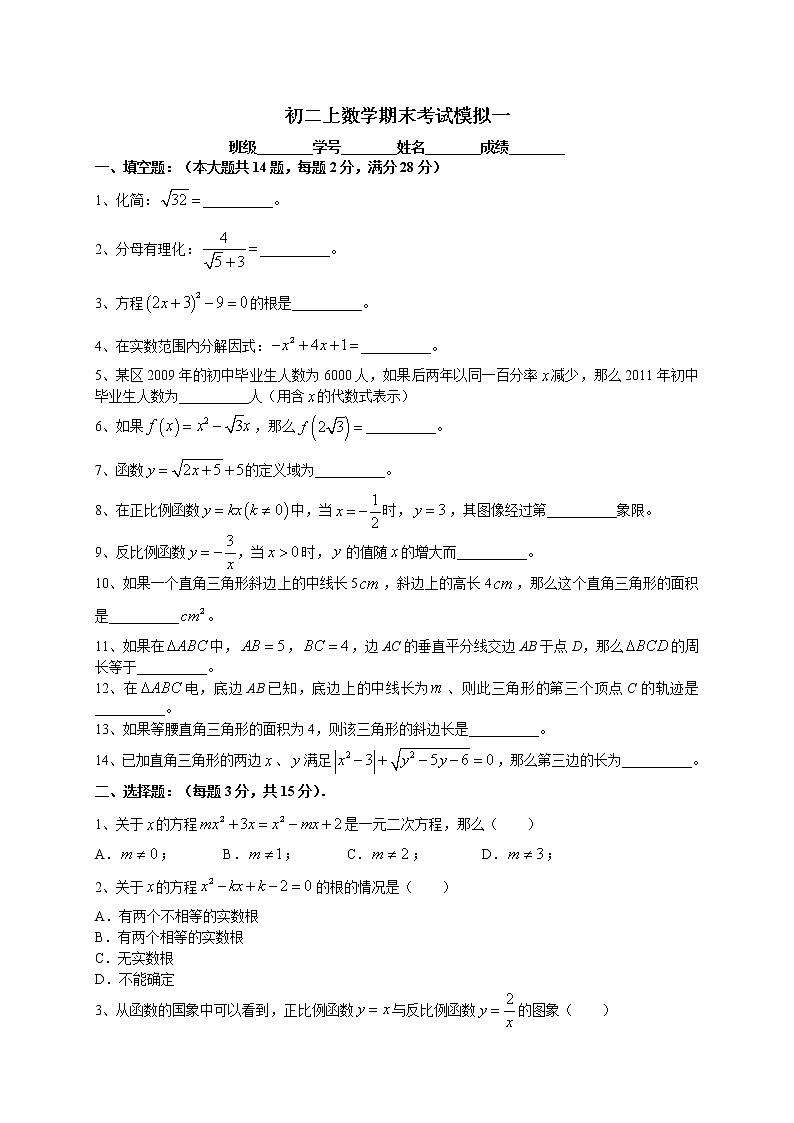 初二上数学期末考试模拟一
班级________学号________姓名________成绩________
一、填空题:(本大题共14题,每题2分,满分28分)
1、化简:√32=__________。
2、分母有理化:4/(√5+3)=__________。
3、方程(2x+3)²−9=0的根是__________。
4、在实数范围内分解因式:−x²+4x+1=__________。
5、某区2009年的初中毕业生人数为6000人,如果后两年以同一百分率x减少,那么2011年初中
毕业生人数为__________人(用含x的代数式表示)
6、如果f(x)=x²−√3x,那么f(2√3)=__________。
7、函数y=√(2x+5)+5的定义域为__________。
8、在正比例函数y=kx(k≠0)中,当x=−1/2时,y=3,其图像经过第__________象限。
9、反比例函数y=−3/x,当x>0时,y的值随x的增大而__________。
10、如果一个直角三角形斜边上的中线长5cm,斜边上的高长4cm,那么这个直角三角形的面积
是__________cm²。
11、如果在ΔABC中,AB=5,BC=4,边AC的垂直平分线交边AB于点D,那么ΔBCD的周
长等于__________。
12、在ΔABC电,底边AB已知,底边上的中线长为m、则此三角形的第三个顶点C的轨迹是
__________。
13、如果等腰直角三角形的面积为4,则该三角形的斜边长是__________。
14、已加直角三角形的两边x、y满足|x²−3|+√(y²−5y−6)=0,那么第三边的长为__________。
二、选择题:(每题3分,共15分).
1、关于x的方程mx²+3x=x²−mx+2是一元二次方程,那么( )
A.m≠0; B.m≠1; C.m≠2; D.m≠3;
2、关于x的方程x²−kx+k−2=0的根的情况是( )
A.有两个不相等的实数根
B.有两个相等的实数根
C.无实数根
D.不能确定
3、从函数的国象中可以看到,正比例函数y=x与反比例函数y=2/x的图象( )